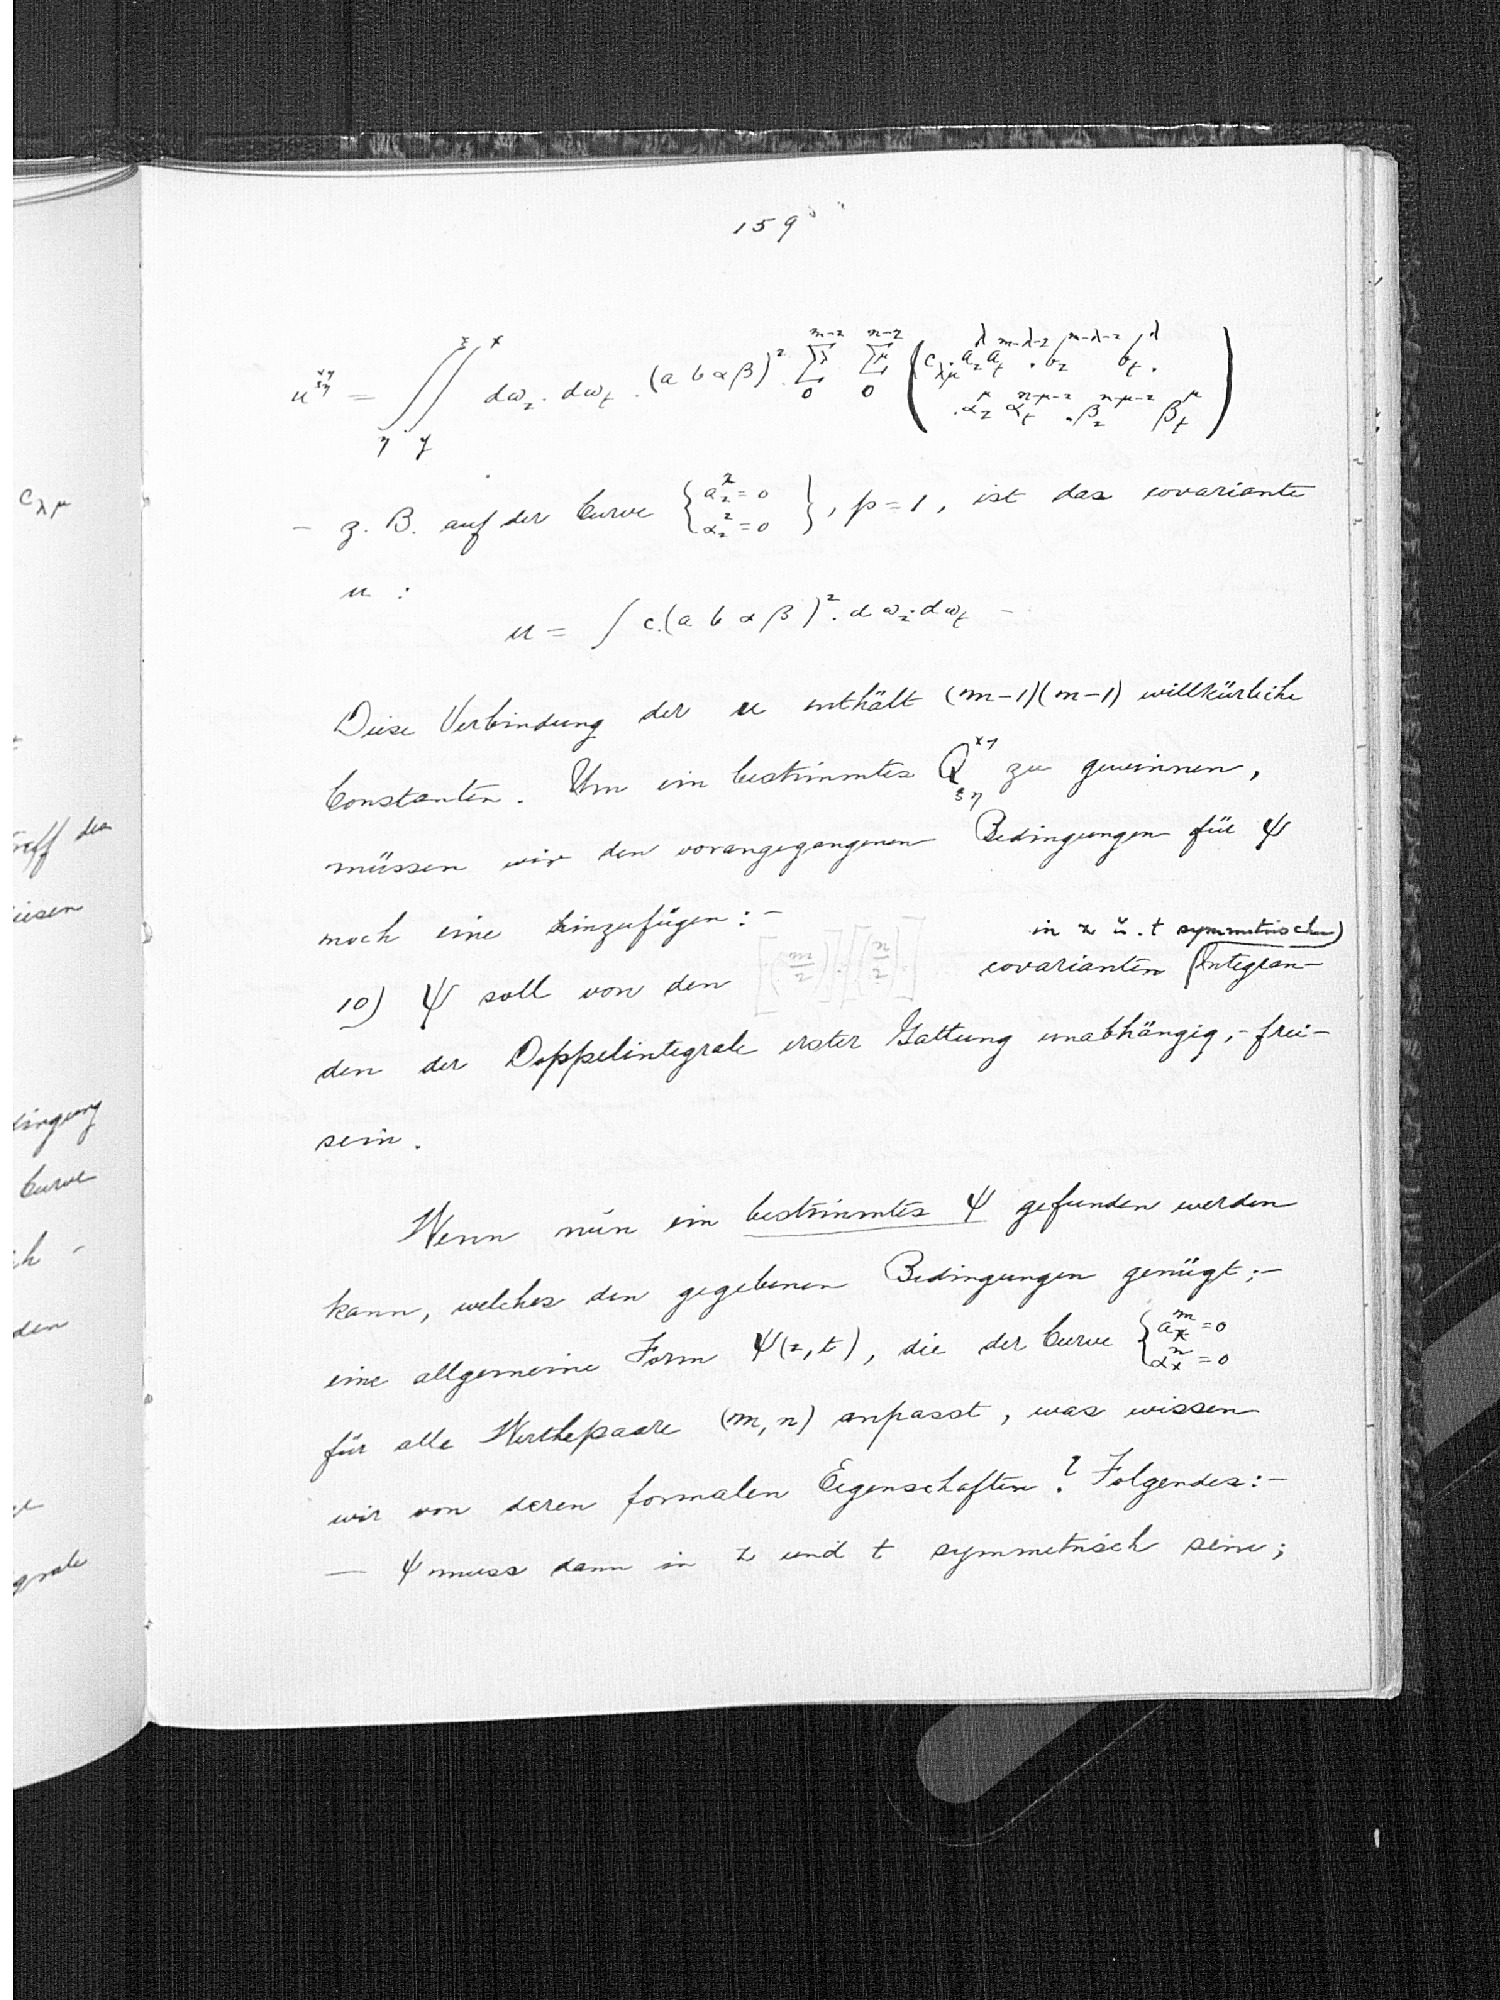 159
u^{xy}_{ξη} = ∫∫^{ξ x}_{η y} dω_z . dω_t . (a b α β)² Σ^{m-2}_{0} λ Σ^{n-2}_{0} μ ( c_{λμ} . a_z^λ a_t^{m-λ-2} . b_z^{m-λ-2} b_t^λ .
. α_z^μ α_t^{n-μ-2} . β_z^{n-μ-2} β_t^μ )
– z. B. auf der Curve { a_z^2 = 0 α_z^2 = 0 }, p = 1, ist das covariante
u :
u = ∫ c.(a b α β)² . dω_z . dω_t –
Diese Verbindung der u enthält (m-1)(m-1) willkürliche
Constanten. Um ein bestimmtes Q^{xy}_{ξη} zu gewinnen,
müssen wir den vorangegangenen Bedingungen für ψ
noch eine hinzufügen: –
in z u. t symmetrischen
10) ψ soll von den [(m/2)] . [(n/2)] covarianten Integran–
den der Doppelintegrale erster Gattung unabhängig, – frei –
sein.
Wenn nun ein bestimmtes ψ gefunden werden
kann, welches den gegebenen Bedingungen genügt; –
eine allgemeine Form ψ(z, t), die der Curve { a_x^m = 0 α_x^n = 0
für alle Werthepaare (m, n) anpasst, was wissen
wir von deren formalen Eigenschaften? Folgendes: –
— ψ muss dann in z und t symmetrisch sein;
c_{λμ}
des
diesen
Curve
den